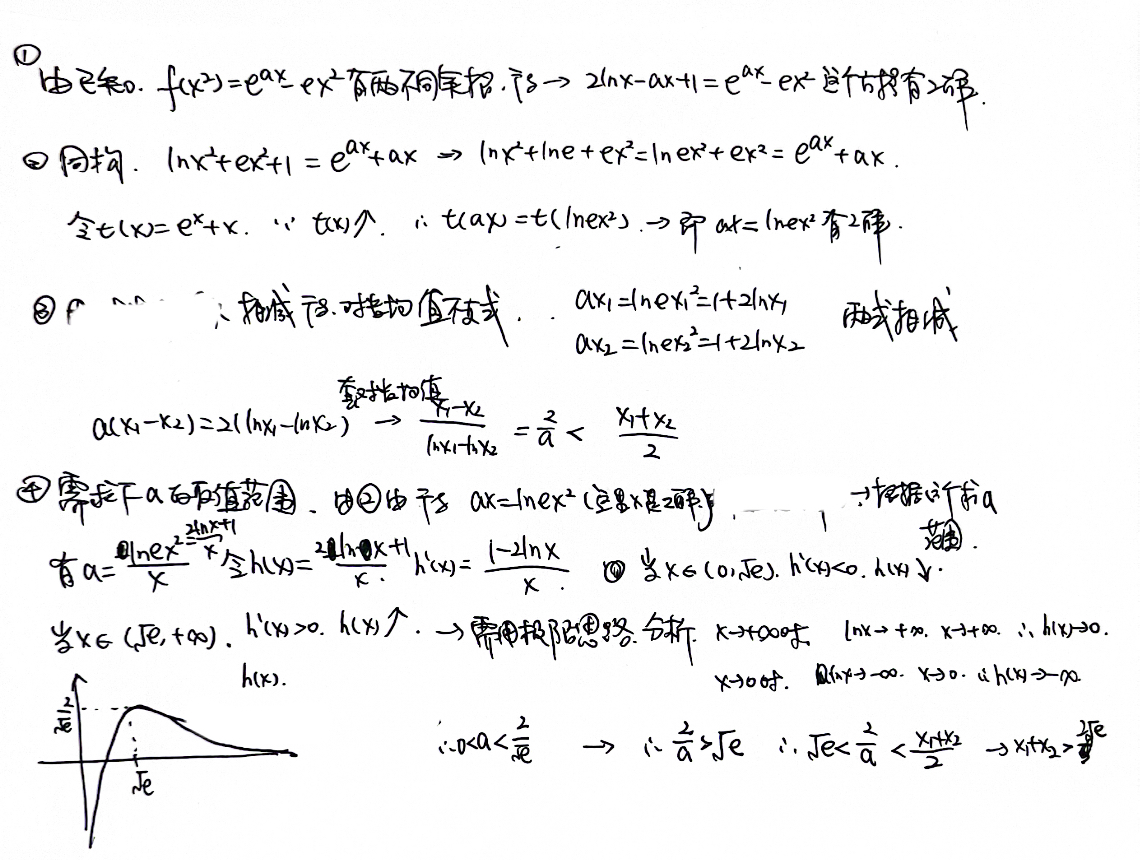 ①
由已知. f(x²)=e^{ax}-ex²有两不同零 → 2lnx-ax+1=e^{ax}-ex² 这个方程有2解.
② 同构. lnx²+ex²+1=e^{ax}+ax → lnx²+lne+ex²=lnex²+ex²=e^{ax}+ax.
令t(x)=e^x+x. ∵ t(x)↑. ∴ t(ax)=t(lnex²). → 即 ax=lnex²有2解.
③ ∴ 相减 对 均值不 式. ax₁=lnex₁²=1+2lnx₁ 两式相减
ax₂=lnex₂²=1+2lnx₂
对 均值
a(x₁-x₂)=2(lnx₁-lnx₂) → \frac{x₁-x₂}{lnx₁-lnx₂} = \frac{2}{a} < \frac{x₁+x₂}{2}
④ 需求下a的取值范围. 由② ax=lnex² → 根据这个求a
范围.
有a=\frac{lnex²}{x}=\frac{2lnx+1}{x} 令h(x)=\frac{2lnx+1}{x}. h'(x)=\frac{1-2lnx}{x}. ① 当x∈(0,√e). h'(x)<0. h(x)↓.
当x∈(√e,+∞). h'(x)>0. h(x)↑. → 需用极限思 分析. x→+∞时. lnx→+∞. x→+∞. ∴h(x)→0.
h(x).
x→0时. lnx→-∞. x→0. ∴h(x)→-∞
\frac{2}{√e}
√e
∴0<a<\frac{2}{√e} → ∴\frac{2}{a}>√e ∴√e<\frac{2}{a}<\frac{x₁+x₂}{2} → x₁+x₂>2√e